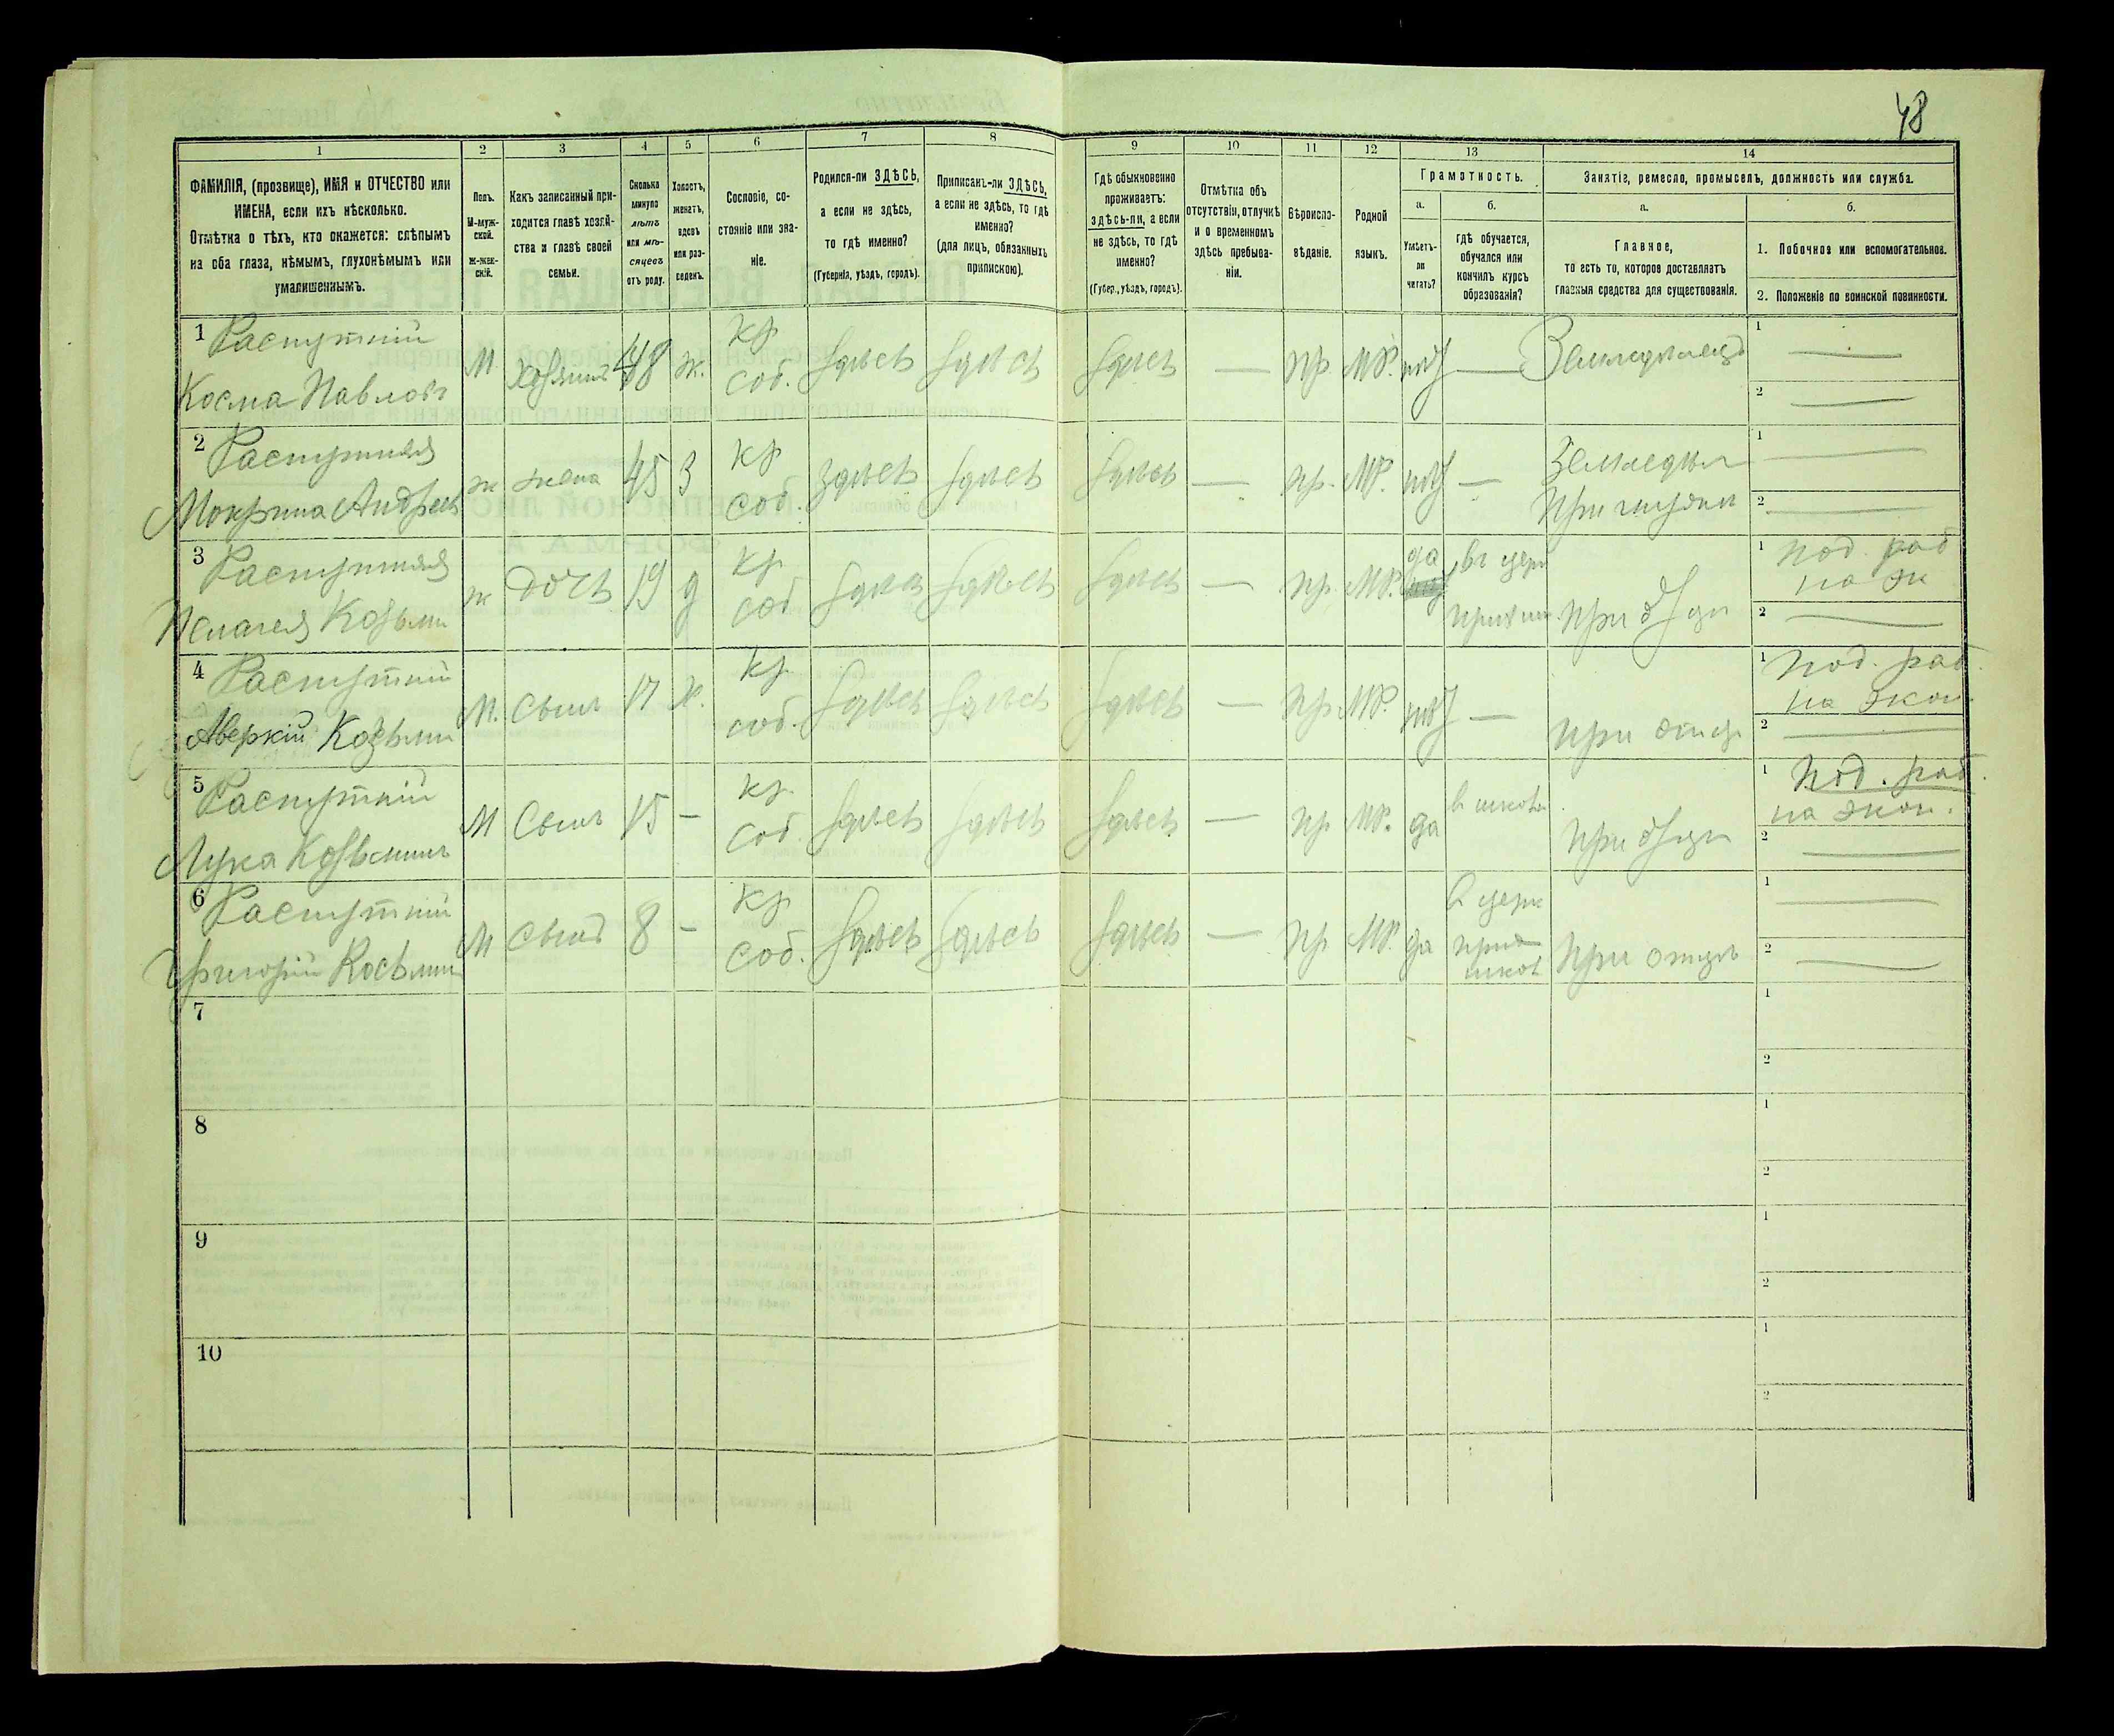 48
1 2 3 4 5 6 7 8 9 10 11 12 13 14
ФАМИЛІЯ, (прозвище), ИМЯ и ОТЧЕСТВО или
ИМЕНА, если ихъ нѣсколько.
Отмѣтка о тѣхъ, кто окажется: слѣпымъ
на оба глаза, нѣмымъ, глухонѣмымъ или
умалишеннымъ.
Полъ.
М-муж-
ской.
Ж-жен-
скій.
Какъ записанный при-
ходится главѣ хозяй-
ства и главѣ своей
семьи.
Сколько
минуло
лѣтъ
или мѣ-
сяцевъ
отъ роду.
Холостъ,
женатъ,
вдовъ
или раз-
веденъ.
Сословіе, со-
стояніе или зва-
ніе.
Родился-ли ЗДѢСЬ,
а если не здѣсь,
то гдѣ именно?
(Губернія, уѣздъ, городъ).
Приписанъ-ли ЗДѢСЬ,
а если не здѣсь, то гдѣ
именно?
(для лицъ, обязанныхъ
припискою).
Гдѣ обыкновенно
проживаетъ:
здѣсь-ли, а если
не здѣсь, то гдѣ
именно?
(Губер., уѣздъ, городъ).
Отмѣтка объ
отсутствіи, отлучкѣ
и о временномъ
здѣсь пребыва-
ніи.
Вѣроиспо-
вѣданіе.
Родной
языкъ.
Грамотность.
а.
Умѣетъ-
ли
читать?
б.
гдѣ обучается,
обучался или
кончилъ курсъ
образованія?
Занятіе, ремесло, промыселъ, должность или служба.
а.
Главное,
то есть то, которое доставляетъ
главныя средства для существованія.
б.
1. Побочное или вспомогательное.
2. Положеніе по воинской повинности.
1 Распутній
Косма Павловъ
М. хозяинъ 48 ж. кр. соб. здѣсь здѣсь здѣсь — пр. МР. — Земледѣлецъ
1 —
2 —
2 Распутняя
Мокрина Андреев
ж жена 45 З кр соб. здѣсь здѣсь здѣсь — пр. МР. —
1 —
2 —
3 Распутняя
Пелагея Козьми
ж дочь 19 д кр. соб здѣсь здѣсь здѣсь — пр. МР. да въ церк при отци
1 под. раб
на эк
2 —
4 Распутній
Аверкій Козьми
М. Сынъ 17 х. кр. соб. здѣсь здѣсь здѣсь — пр МР. — при отце
1 под. раб.
на экон.
2 —
5 Распутній
Лука Козьминъ
М Сынъ 15 — кр. соб. здѣсь здѣсь здѣсь — пр МР. да в школѣ при отци
1 под. раб.
на экон.
2 —
6 Распутній
Григорій Косьмин
М сынъ 8 — кр соб. здѣсь здѣсь здѣсь — пр МР. да в церк прих школ при отцѣ
1 —
2 —
7
1
2
8
1
2
9
1
2
10
1
2